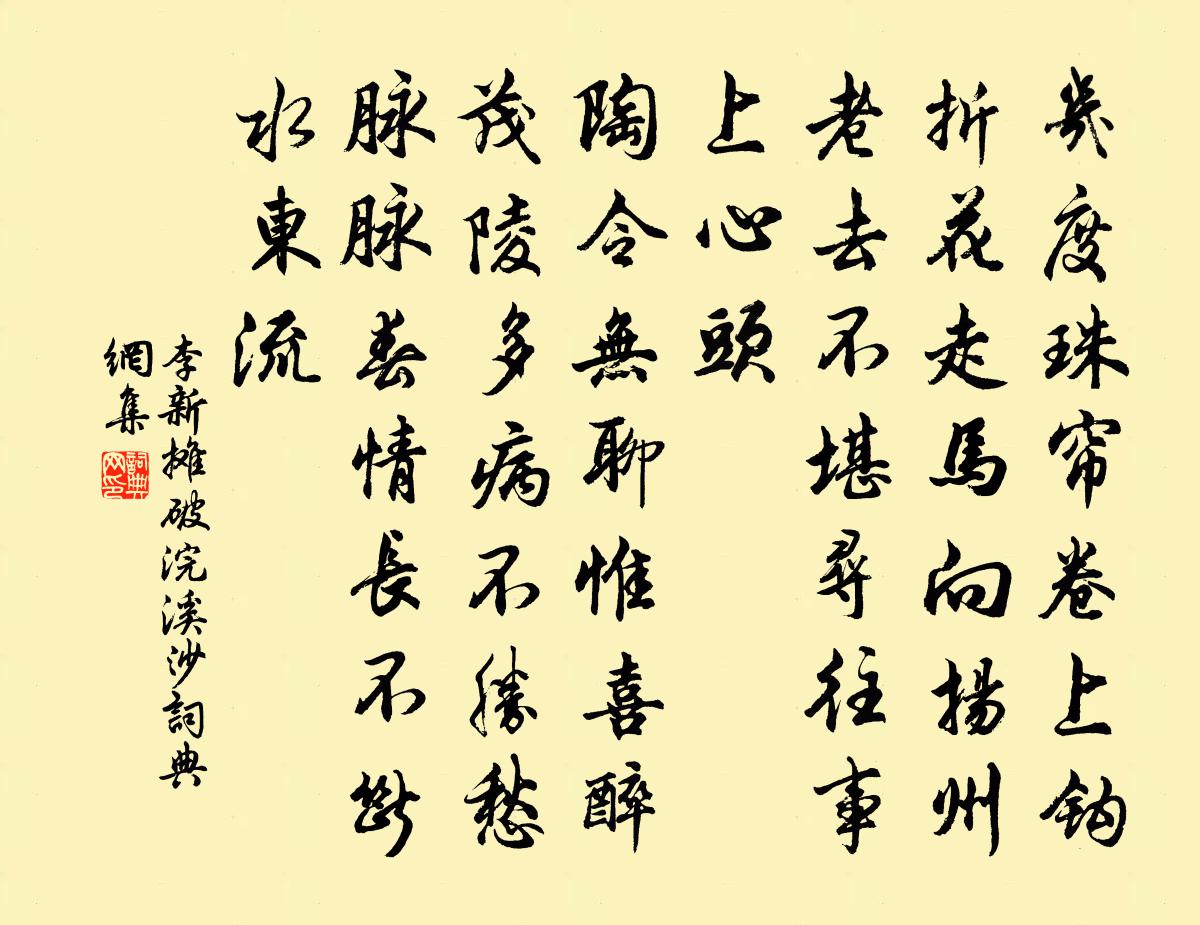 幾度珠帘卷上鈎
折花走馬向揚州
老去不堪尋往事
上心頭
陶令無聊惟喜醉
茂陵多病不勝愁
脉脉春情長不斷
水東流
李新攤破浣溪沙詞典
網集
詞典
网印